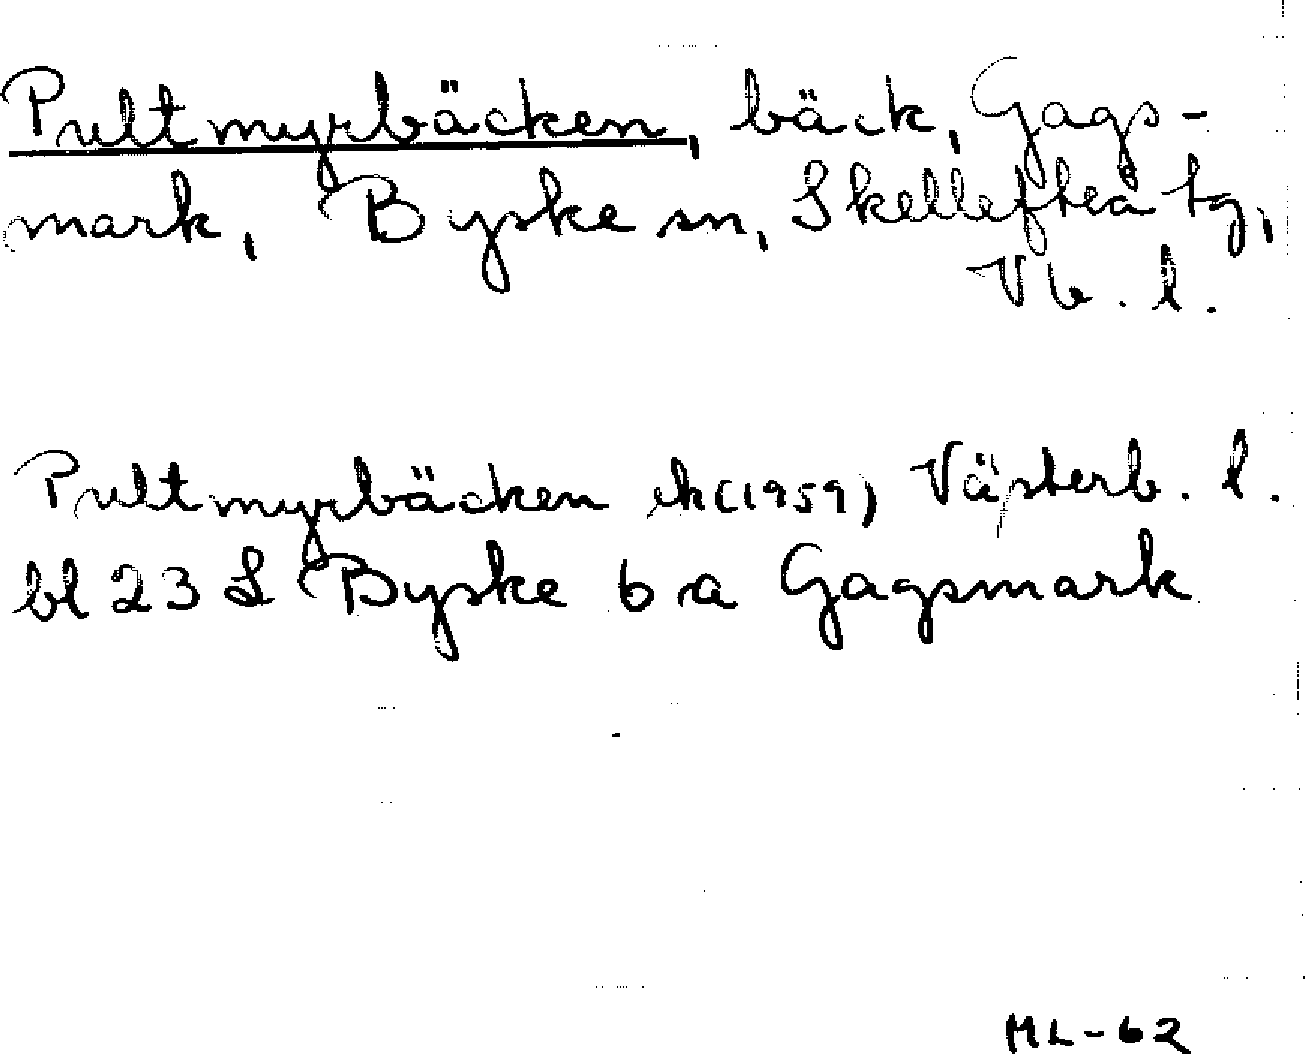 Pultmyrbäcken, bäck, Gags-
mark, Byske sn, Skellefteå tg,
Vb. l.
Pultmyrbäcken ek (1959) Västerb. l.
bl 23 L Byske 6 a Gagsmark
ML-62